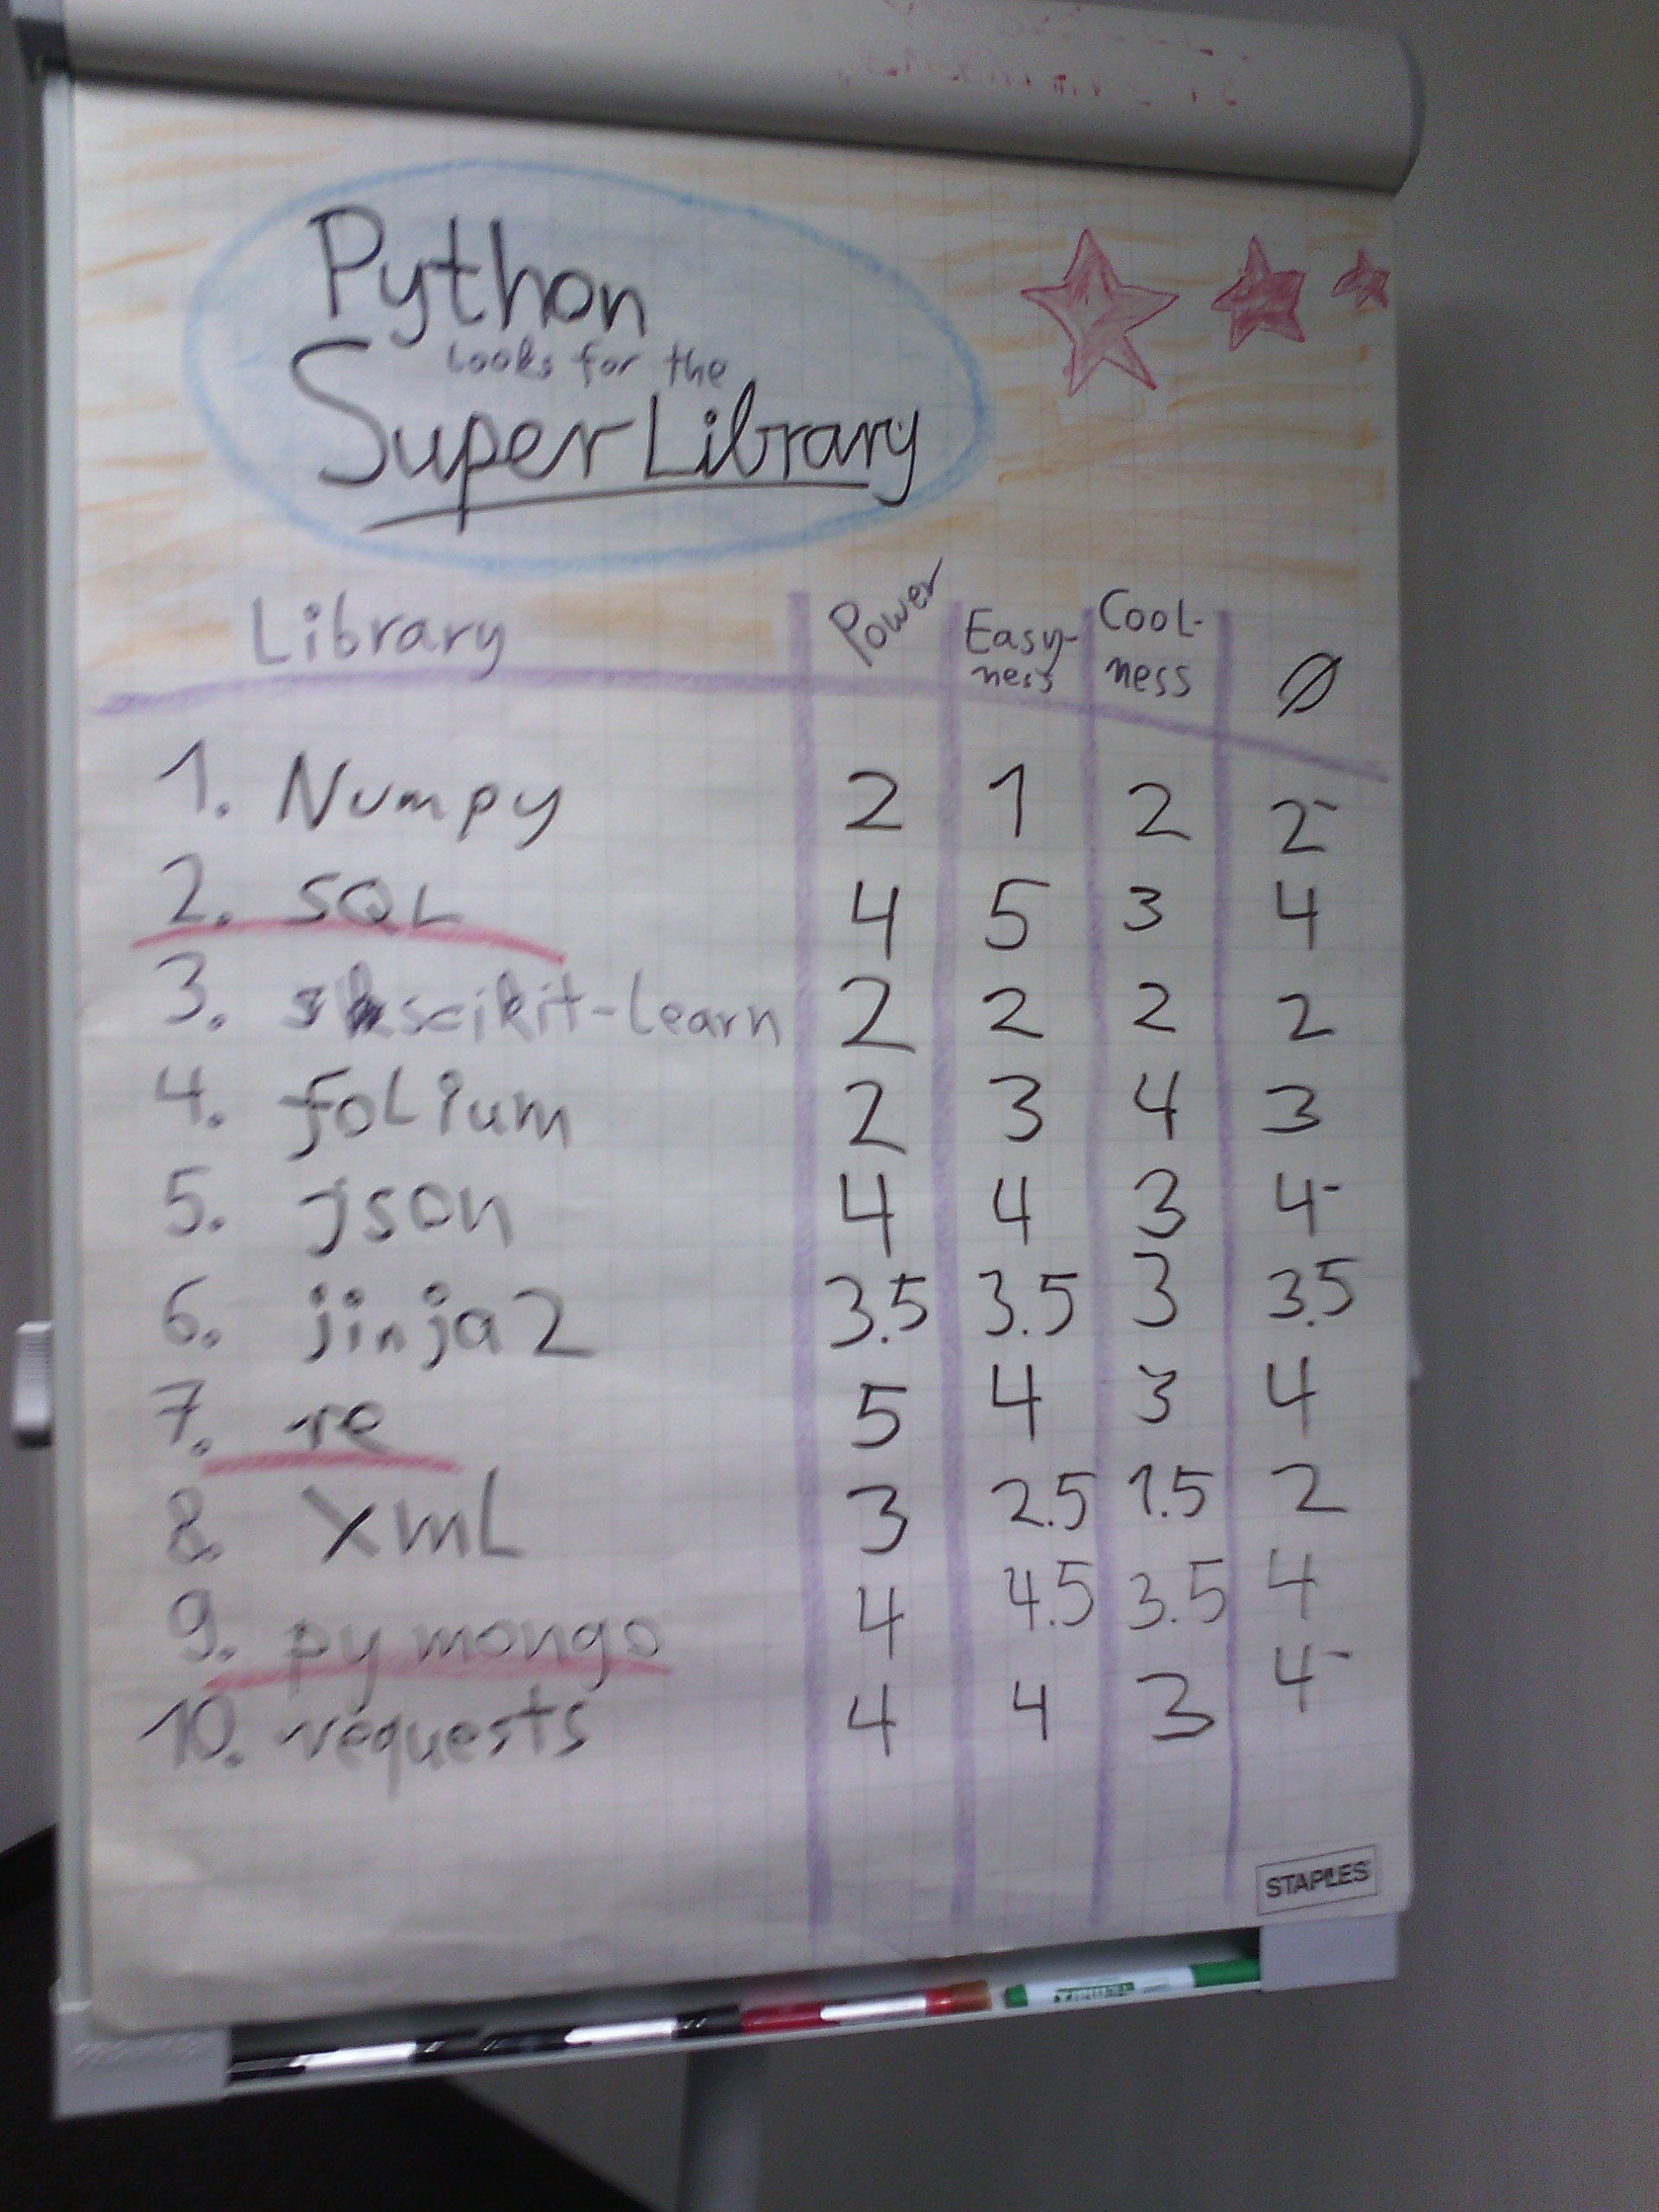 Python
looks for the
Super Library
Library Power Easy-ness Cool-ness Ø
1. Numpy 2 1 2 2-
2. SQL 4 5 3 4
3. scikit-learn 2 2 2 2
4. folium 2 3 4 3
5. json 4 4 3 4-
6. jinja2 3.5 3.5 3 3.5
7. re 5 4 3 4
8. XmL 3 2.5 1.5 2
9. pymongo 4 4.5 3.5 4
10. requests 4 4 3 4-
STAPLES